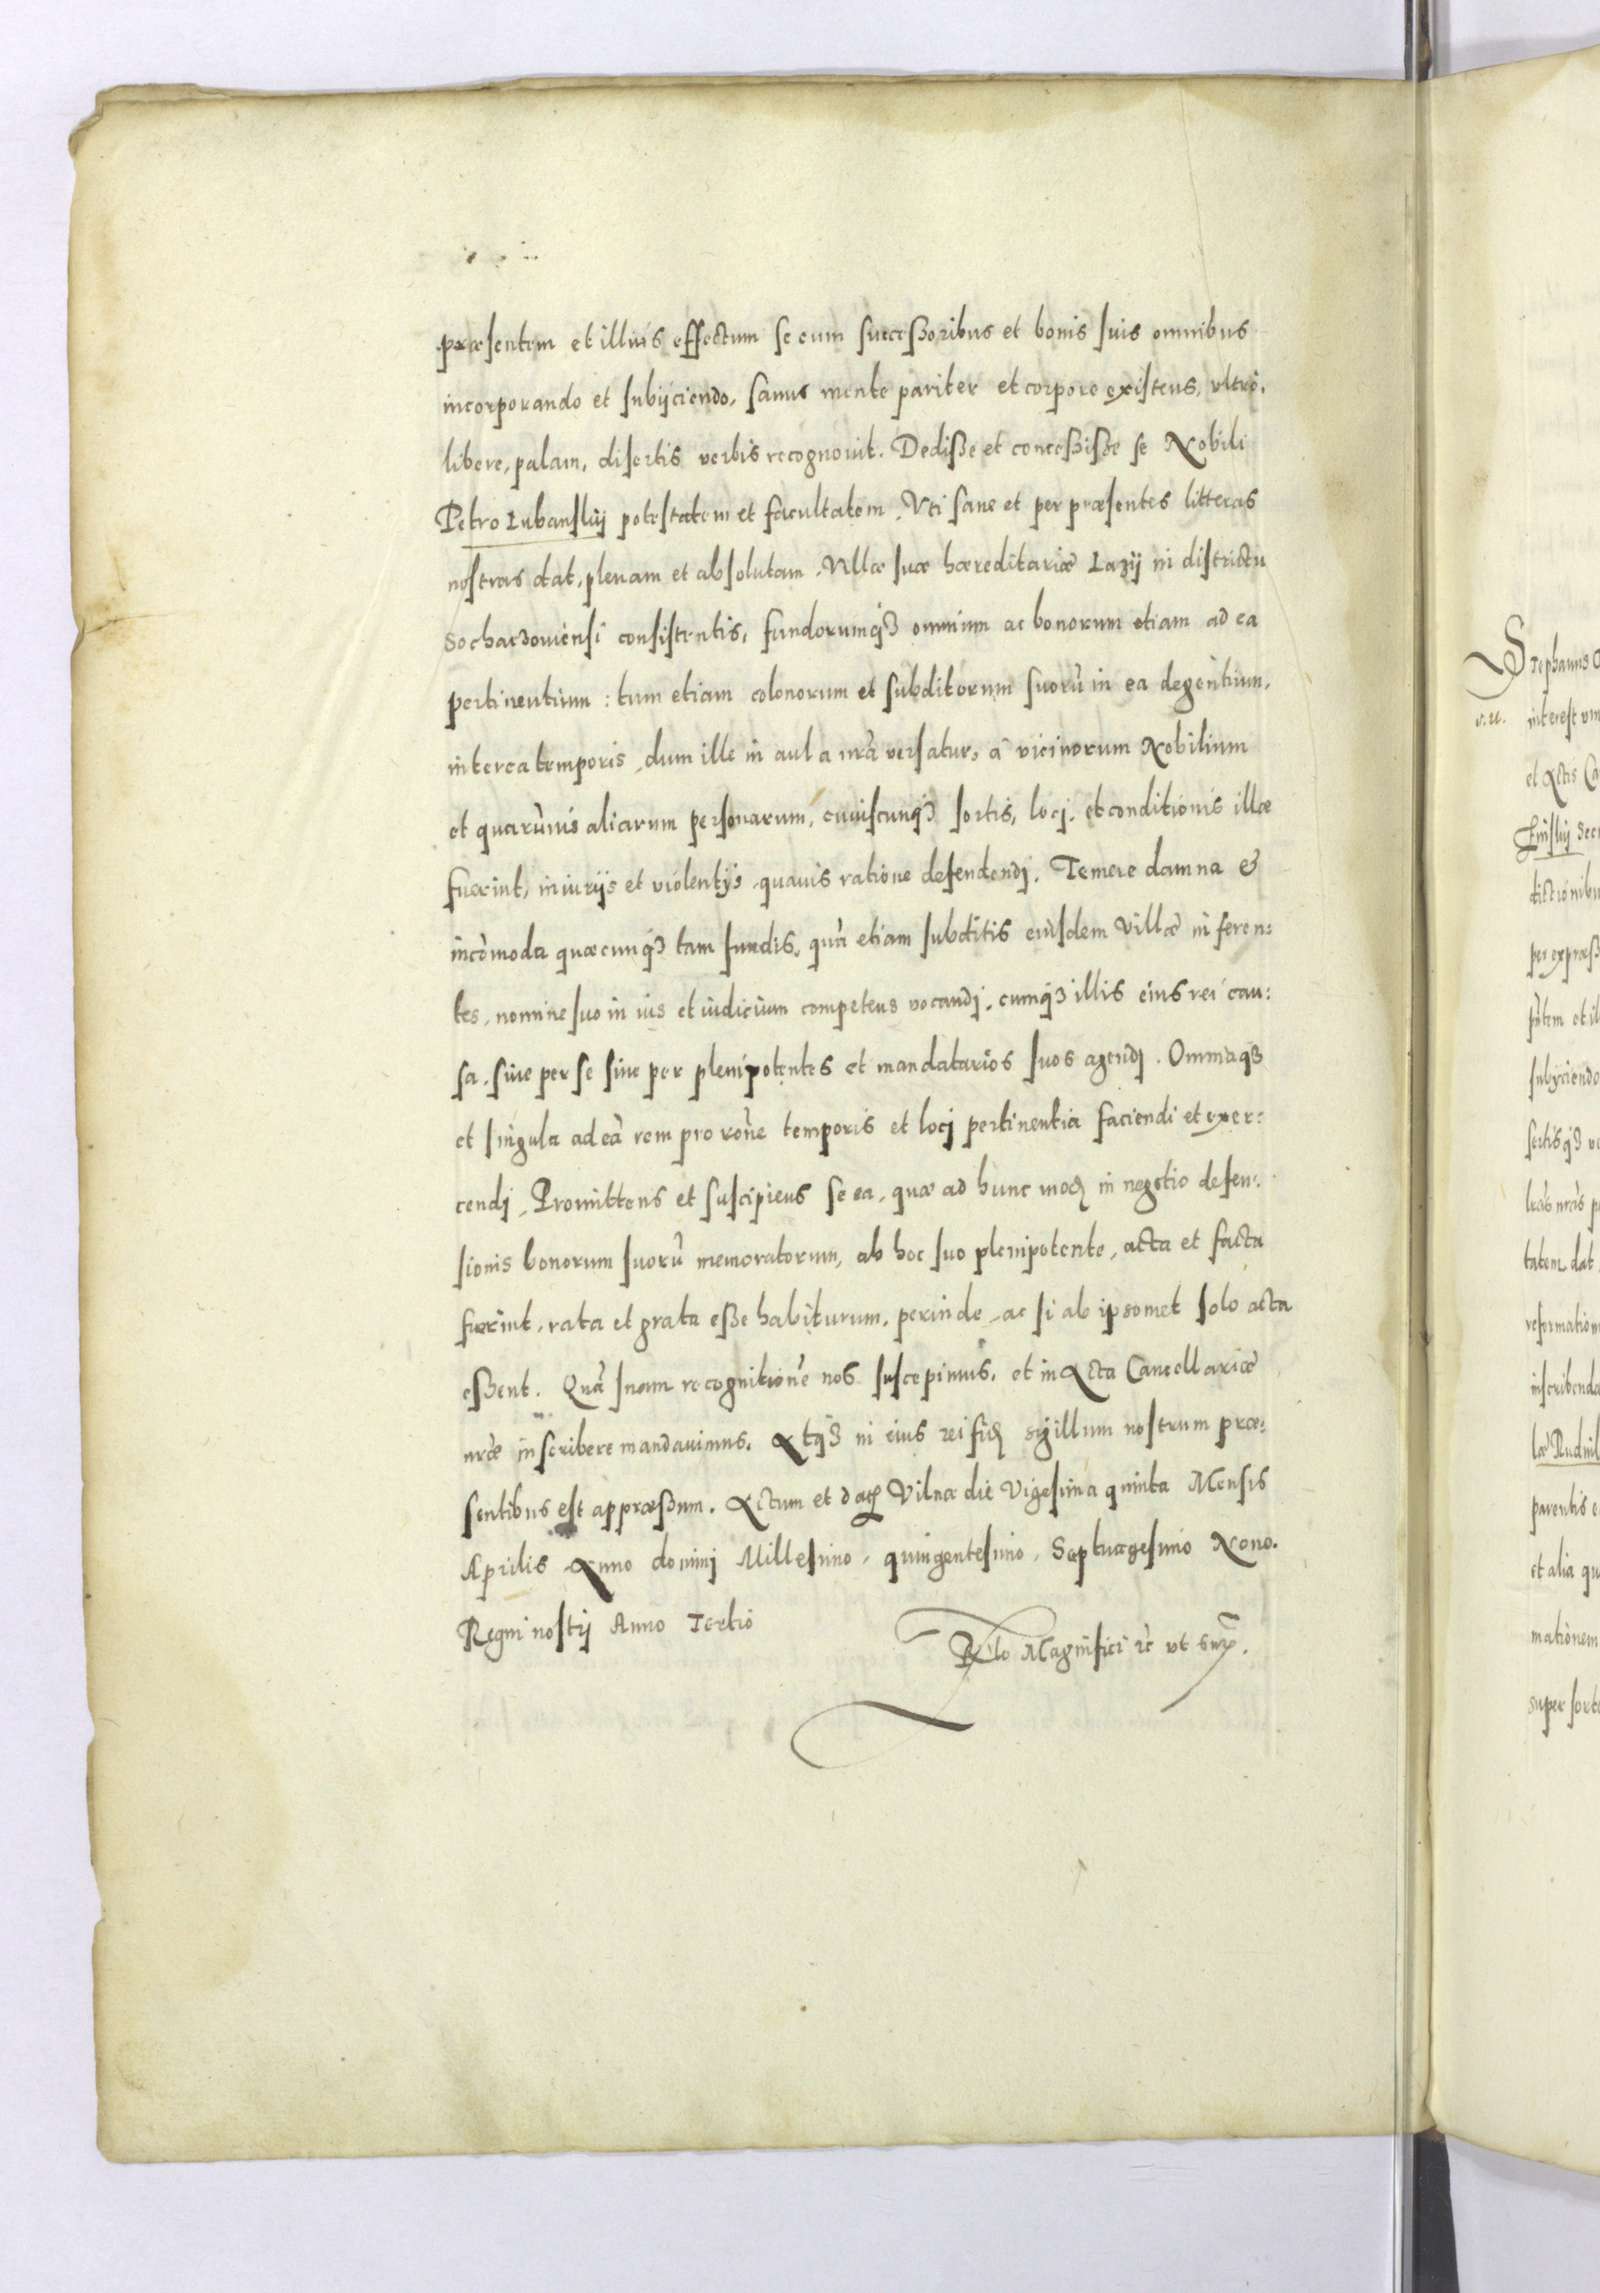 præsentem et illius effectum se cum succeßoribus et bonis suis omnibus
incorporando et subijciendo, sanus mente pariter et corpore existens, vltrò,
libere, palam, disertis verbis recognouit. Dediße et conceßiße se Nobili
Petro Lubanskij potestatem et facultatem. Vti sane et per præsentes litteras
nostras dat, plenam et absolutam. Villæ suæ hæreditariæ Lazij in districtu
Sochaczouiensi consistentis, fundorumq3 omnium ac bonorum etiam ad ea
pertinentium: tum etiam colonorum et subditorum suorũ in ea degentium,
interea temporis, dum ille in aula nr̃a versatur, à vicinorum Nobilium
et quarũuis aliarum personarum, cuiuscunq3 sortis, locj, et conditionis illæ
fuerint, iniurijs et violentijs quauis ratione defendendj. Temere damna &
incõmoda quæcunq3 tam fundis, quã etiam subditis eiusdem Villæ inferen:
tes, nomine suo in ius et iudicium competens vocandj, cumq3 illis eius rei cau:
sa, siue per se siue per plenipotentes et mandatarios suos agendj. Omniaq3
et singula ad eã rem pro rõne temporis et locj pertinentia faciendi et exer:
cendj, Promittens et suscipiens se ea, quæ ad hunc mod̃ in negotio defen:
sionis bonorum suorũ memoratorum, ab hoc suo plenipotente, acta et facta
fuerint, rata et grata eße habiturum, perinde, ac si ab ipsomet solo acta
eßent. Quã suam recognitionẽ nos suscepimus, et in Acta Cancellariæ
nr̃æ inscribere mandauimus. Atq3 in eius rei fid̃ sigillum nostrum præ:
sentibus est appræßum. Actum et dat̃ Vilnæ die Vigesima quinta Mensis
Aprilis Anno dominj Millesimo, quingentesimo, Septuagesimo Nono.
Regni nostrj Anno Tertio
Rl̃o Magnifici rc̃ vt supr̃.
Stephanus
v.u. interest
et Actis
per expræß
subijciendo
sertisq3
tatem dat
reformation
inscribenda
parentis
et alia
mationem
super